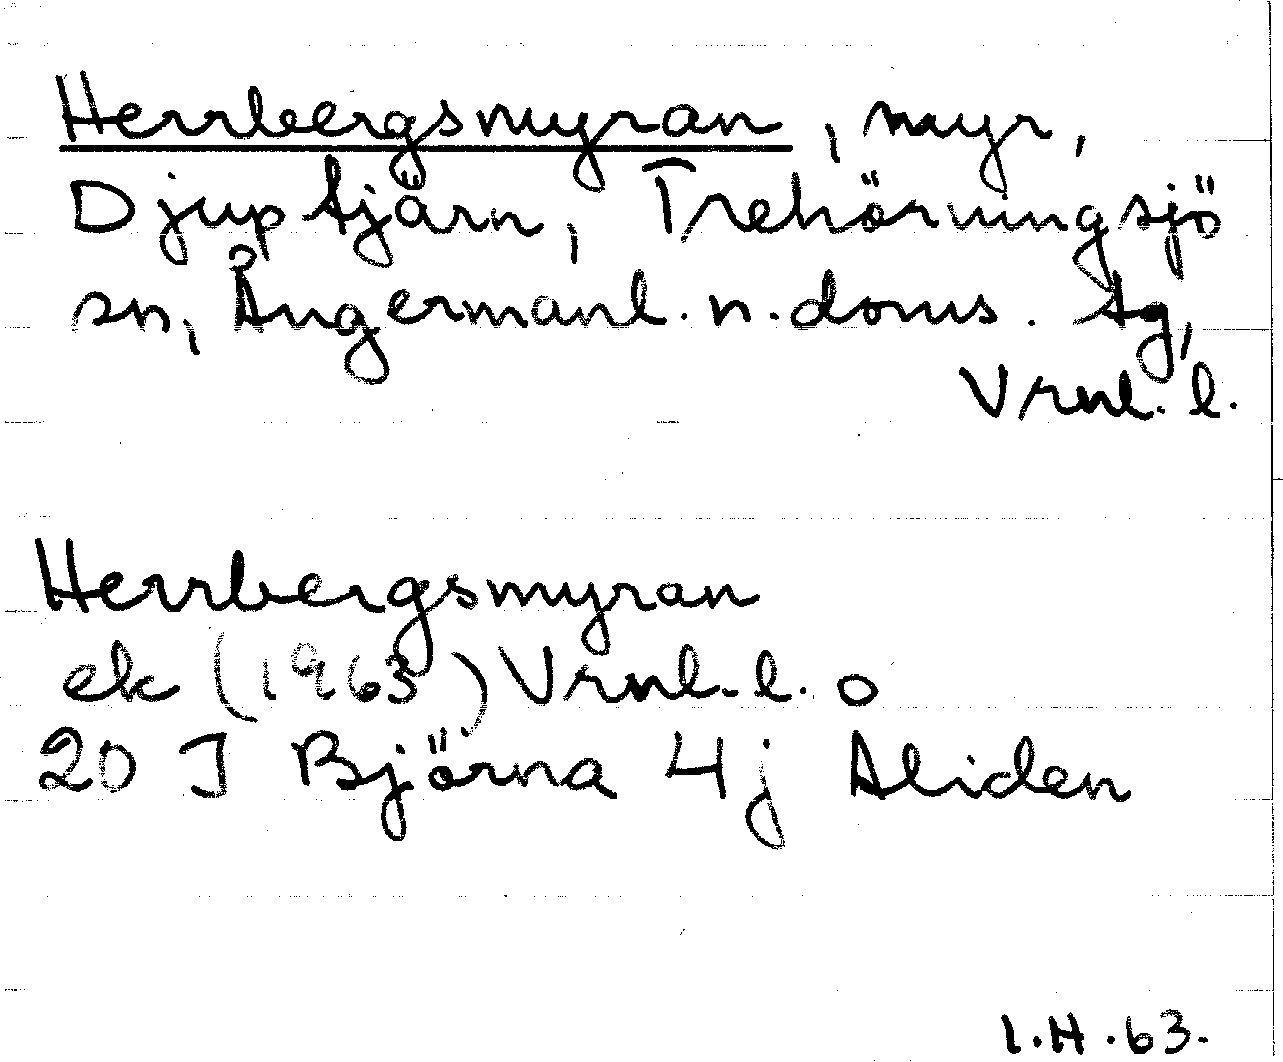 Herrbergsmyran, myr,
Djuptjärn, Trehörningsjö
sn, Ångermanl. n. doms. tg,
Vrnl. l.
Herrbergsmyran
ek (1963) Vrnl. l. o
20 J Björna 4j Aliden
I.H. 63.